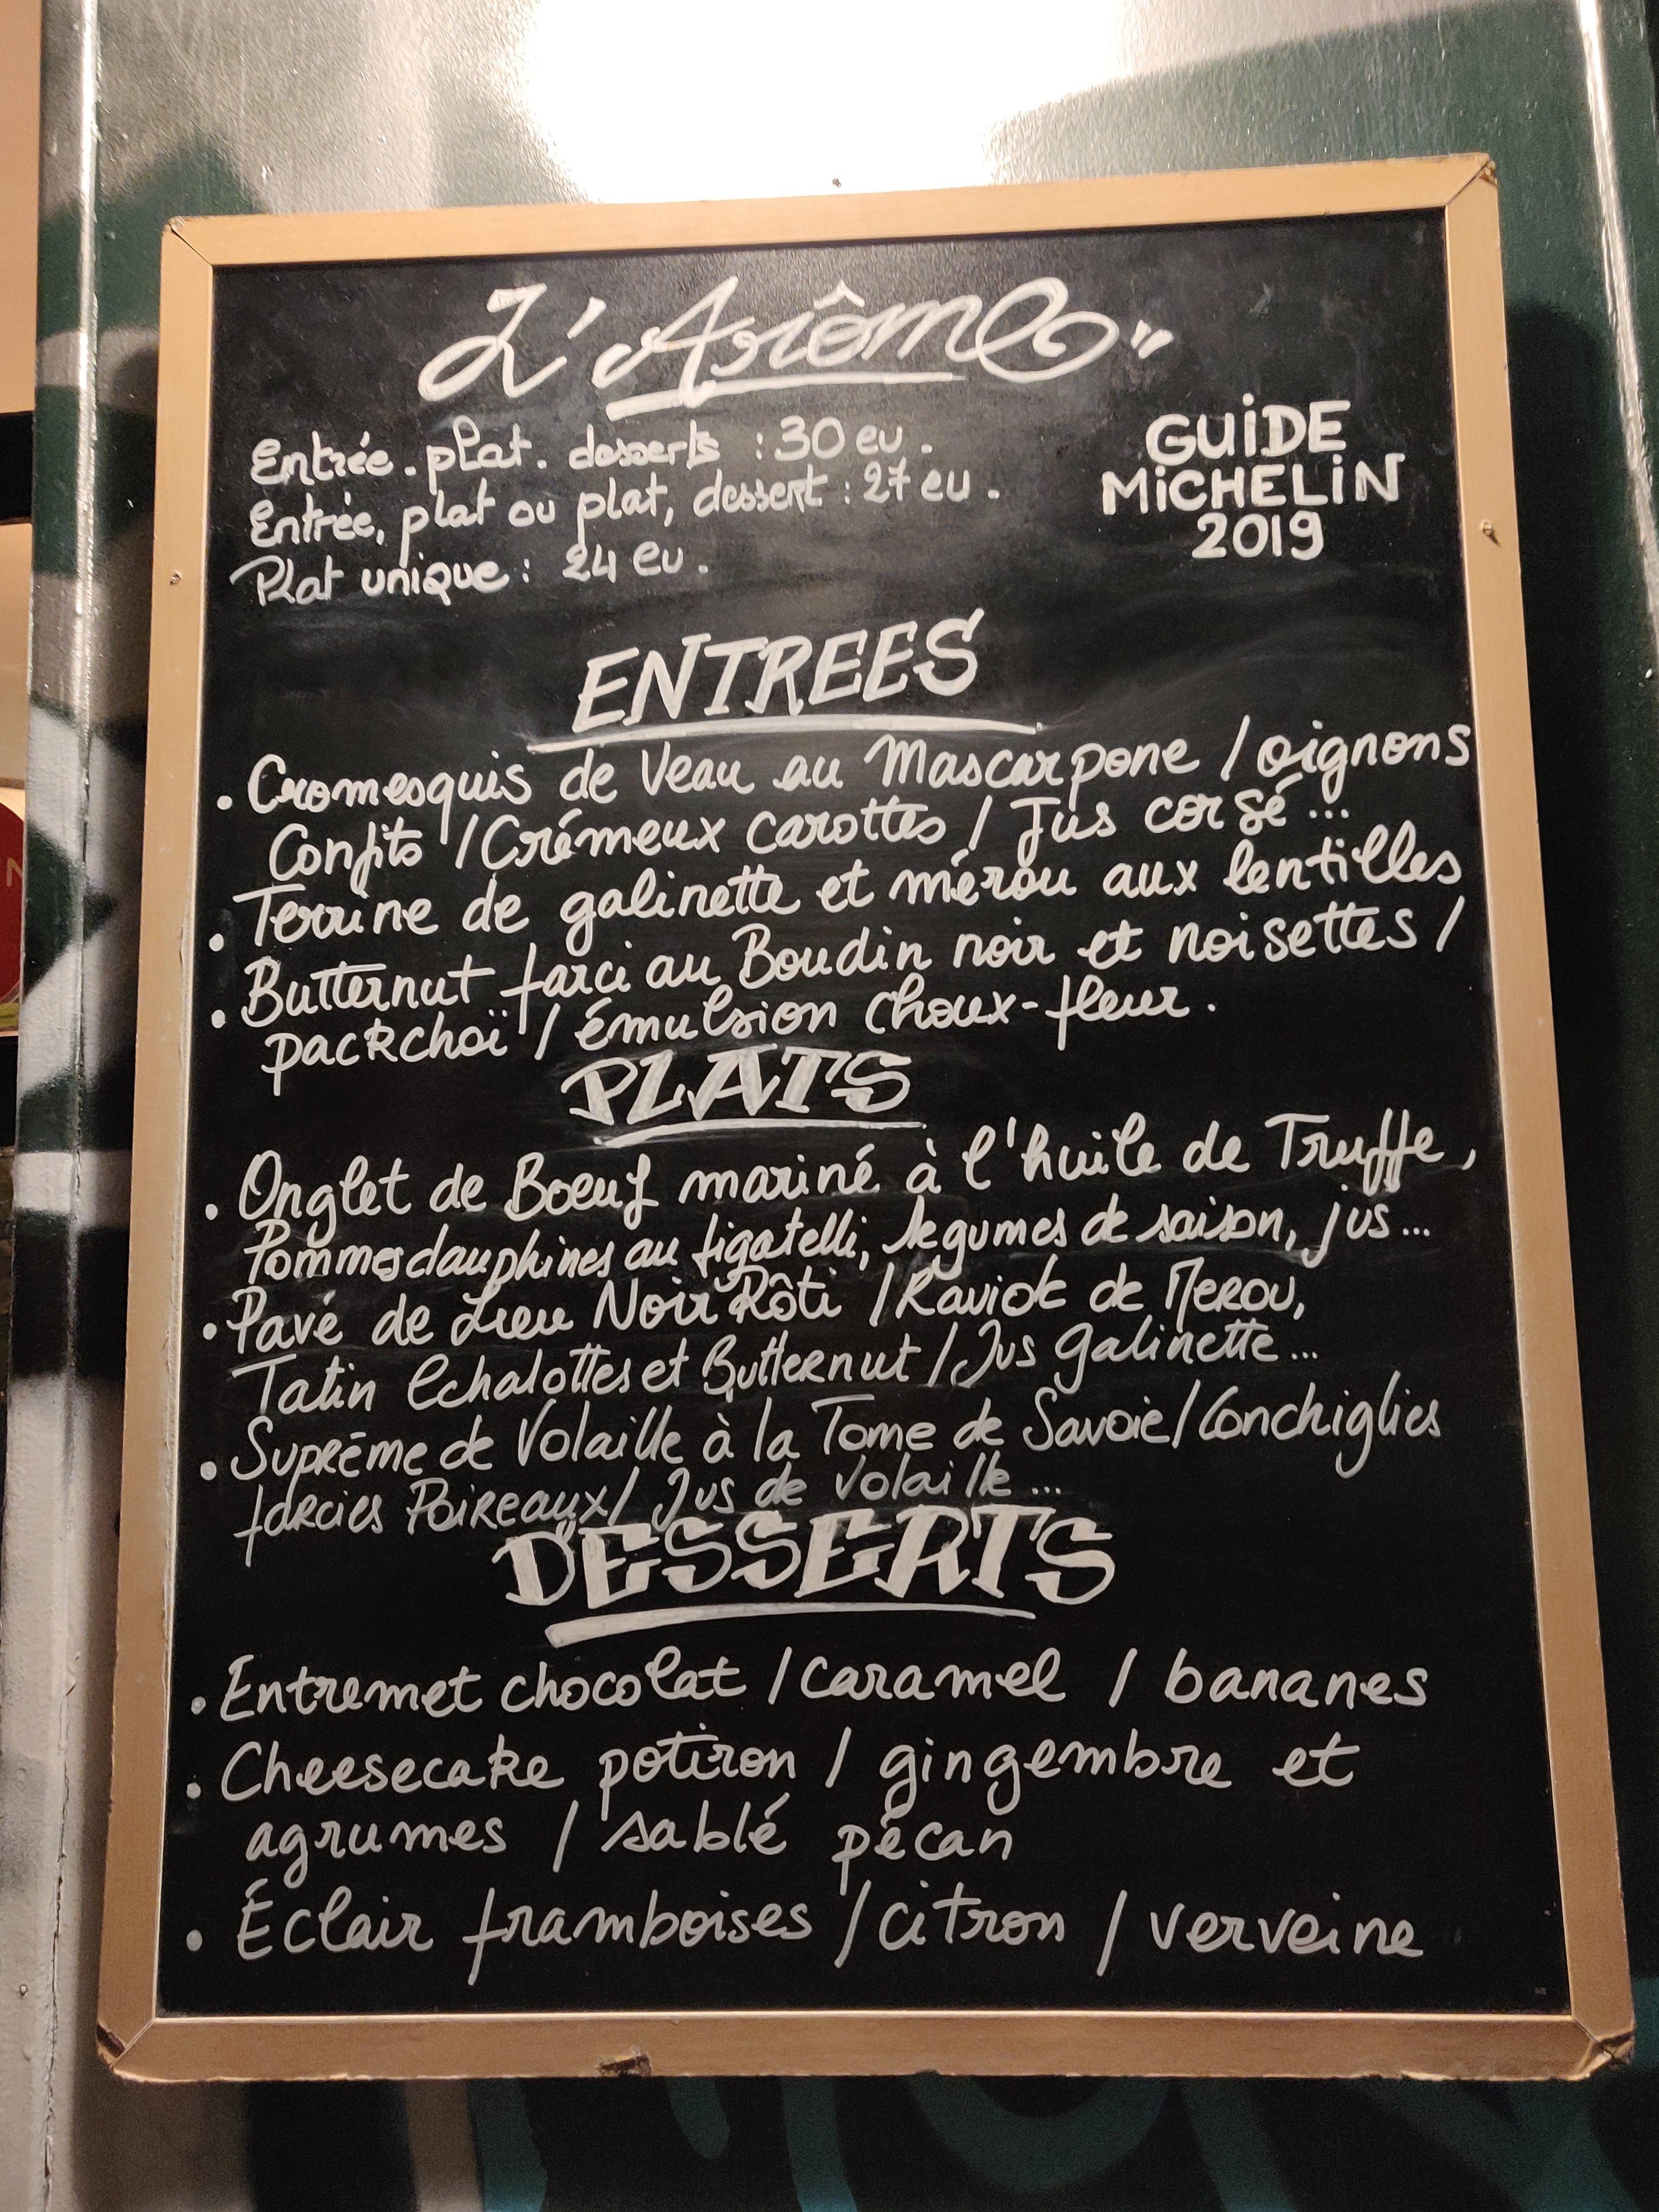 L'Arôme
Entrée. plat. desserts : 30 eu.
Entrée, plat ou plat, dessert : 27 eu.
Plat unique : 24 eu.
GUIDE
MICHELIN
2019
ENTREES
• Cromesquis de Veau au Mascarpone / oignons
Confits / Crémeux carottes / Jus corsé...
• Terrine de galinette et mérou aux lentilles
• Butternut farci au Boudin noir et noisettes /
packchoï / émulsion choux-fleur.
PLATS
• Onglet de Boeuf mariné à l'huile de Truffe,
Pommes dauphines au figatelli, légumes de saison, jus...
• Pavé de Lieu Noir Rôti / Raviole de Merou,
Tatin Echalottes et Butternut / Jus galinette...
• Suprême de Volaille à la Tome de Savoie / Conchiglies
farcies Poireaux / Jus de volaille...
DESSERTS
• Entremet chocolat / caramel / bananes
• Cheesecake potiron / gingembre et
agrumes / sablé pécan
• Éclair framboises / citron / verveine